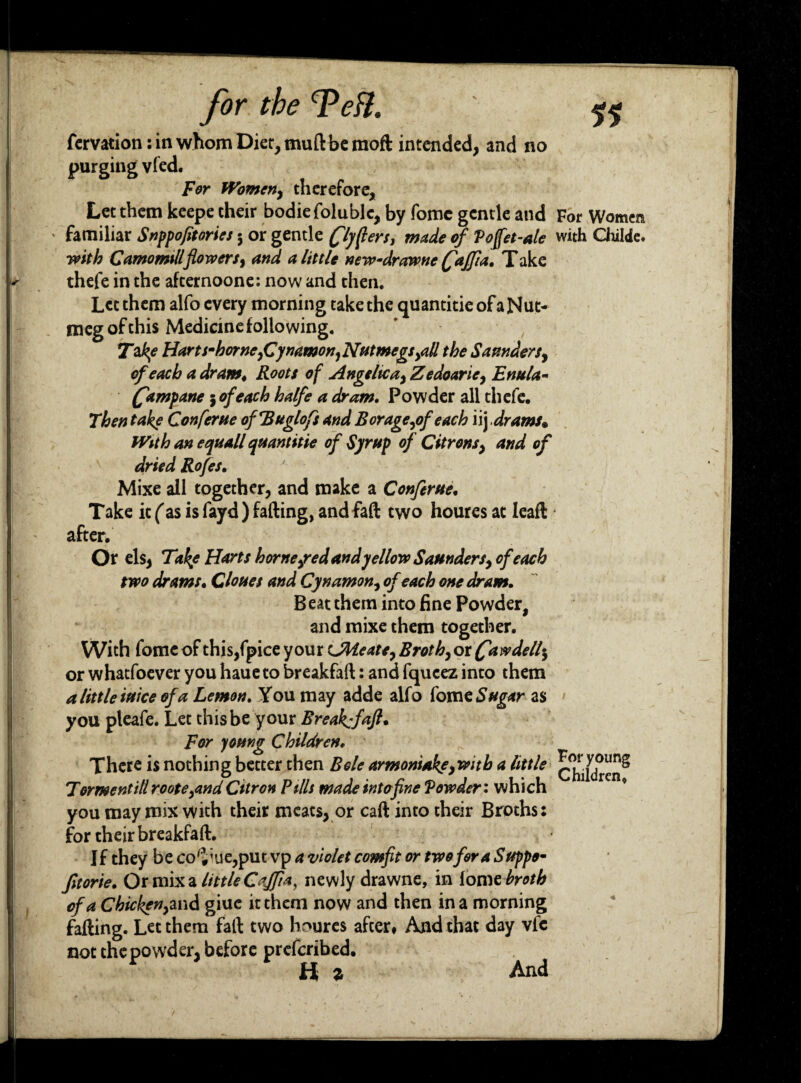 for the Peſt.
55
ſervation : in whom Diet, muſt be moſt intended, and no
purging vſed.
For Women, therefore,
Let them keepe their bodie ſoluble, by ſome gentle and
familiar Suppoſitories ; or gentle Clyſters, made of Poſſet-ale
with Camomill flowers, and a little new-drawne Caſſia. Take
theſe in the afternoone: now and then.
For Women
with Childe.
Let them alſo every morning take the quantitie of a Nut-
meg of this Medicine following.
Take Harts-horne,Cynamon,Nutmegs,all the Saunders,
of each a dram. Roots of Angelica, Zedoarie, Enula-
Campane ; of each halfe a dram. Powder all theſe.
Then take Conſerue of Bugloſs and Borage,of each iij.drams.
With an equall quantitie of Syrup of Citrons, and of
dried Roſes.
Mixe all together, and make a Conſerue.
Take it (as is ſayd) faſting, and faſt two houres at leaſt
after.
Or els, Take Harts horne,red and yellow Saunders, of each
two drams. Cloues and Cynamon, of each one dram.
Beat them into fine Powder,
and mixe them together.
With ſome of this,ſpice your Meate, Broth, or Cawdell;
or whatſoever you haue to breakfaſt : and ſqueez into them
a little iuice of a Lemon. You may adde alſo ſome Sugar as
you pleaſe. Let this be your Break-faſt.
For young Children.
There is nothing better then Bole armoniake,with a little
Tormentill roote,and Citron Pills made into fine Powder: which
you may mix with their meats, or caſt into their Broths:
for their breakfaſt.
For young
Children.
If they be coſtiue,put vp a violet comfit or two for a Suppo-
ſitorie. Or mix a little Caſſia, newly drawne, in ſome broth
of a Chicken,and giue it them now and then in a morning
faſting. Let them faſt two houres after. And that day vſe
not the powder, before preſcribed.
H 2
And